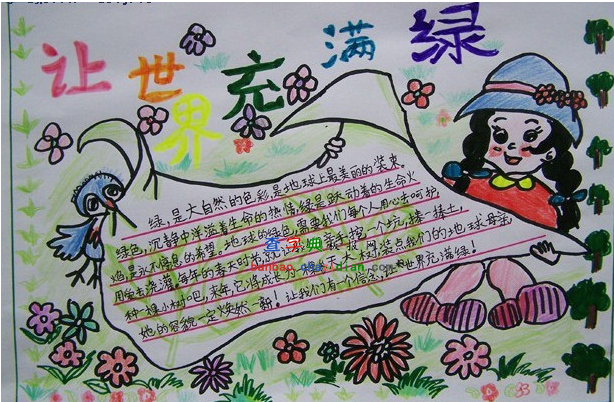 让世界充满绿
绿,是大自然的色彩,是地球上最美丽的装束。
绿色,沉静中洋溢着生命的热情,绿是跃动着的生命火
焰是永不停息的希望。地球的绿色,需要我们每个人用心去呵护,
用爱去浇灌。每年的春天时节,就让我们亲手挖一个坑,捧一捧土,
种一棵小树吧,来年,它将成长为参天大树,装点我们的地球母亲
地的容貌一定焕然一新!让我们有一个信念,让世界充满绿!
查字典
chazidian.com